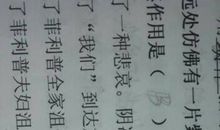 远处仿佛有一片紫
作用是（ B ）
了一种悲哀。阴
了“我们”到达
了菲利普全家沮
了菲利普夫妇沮